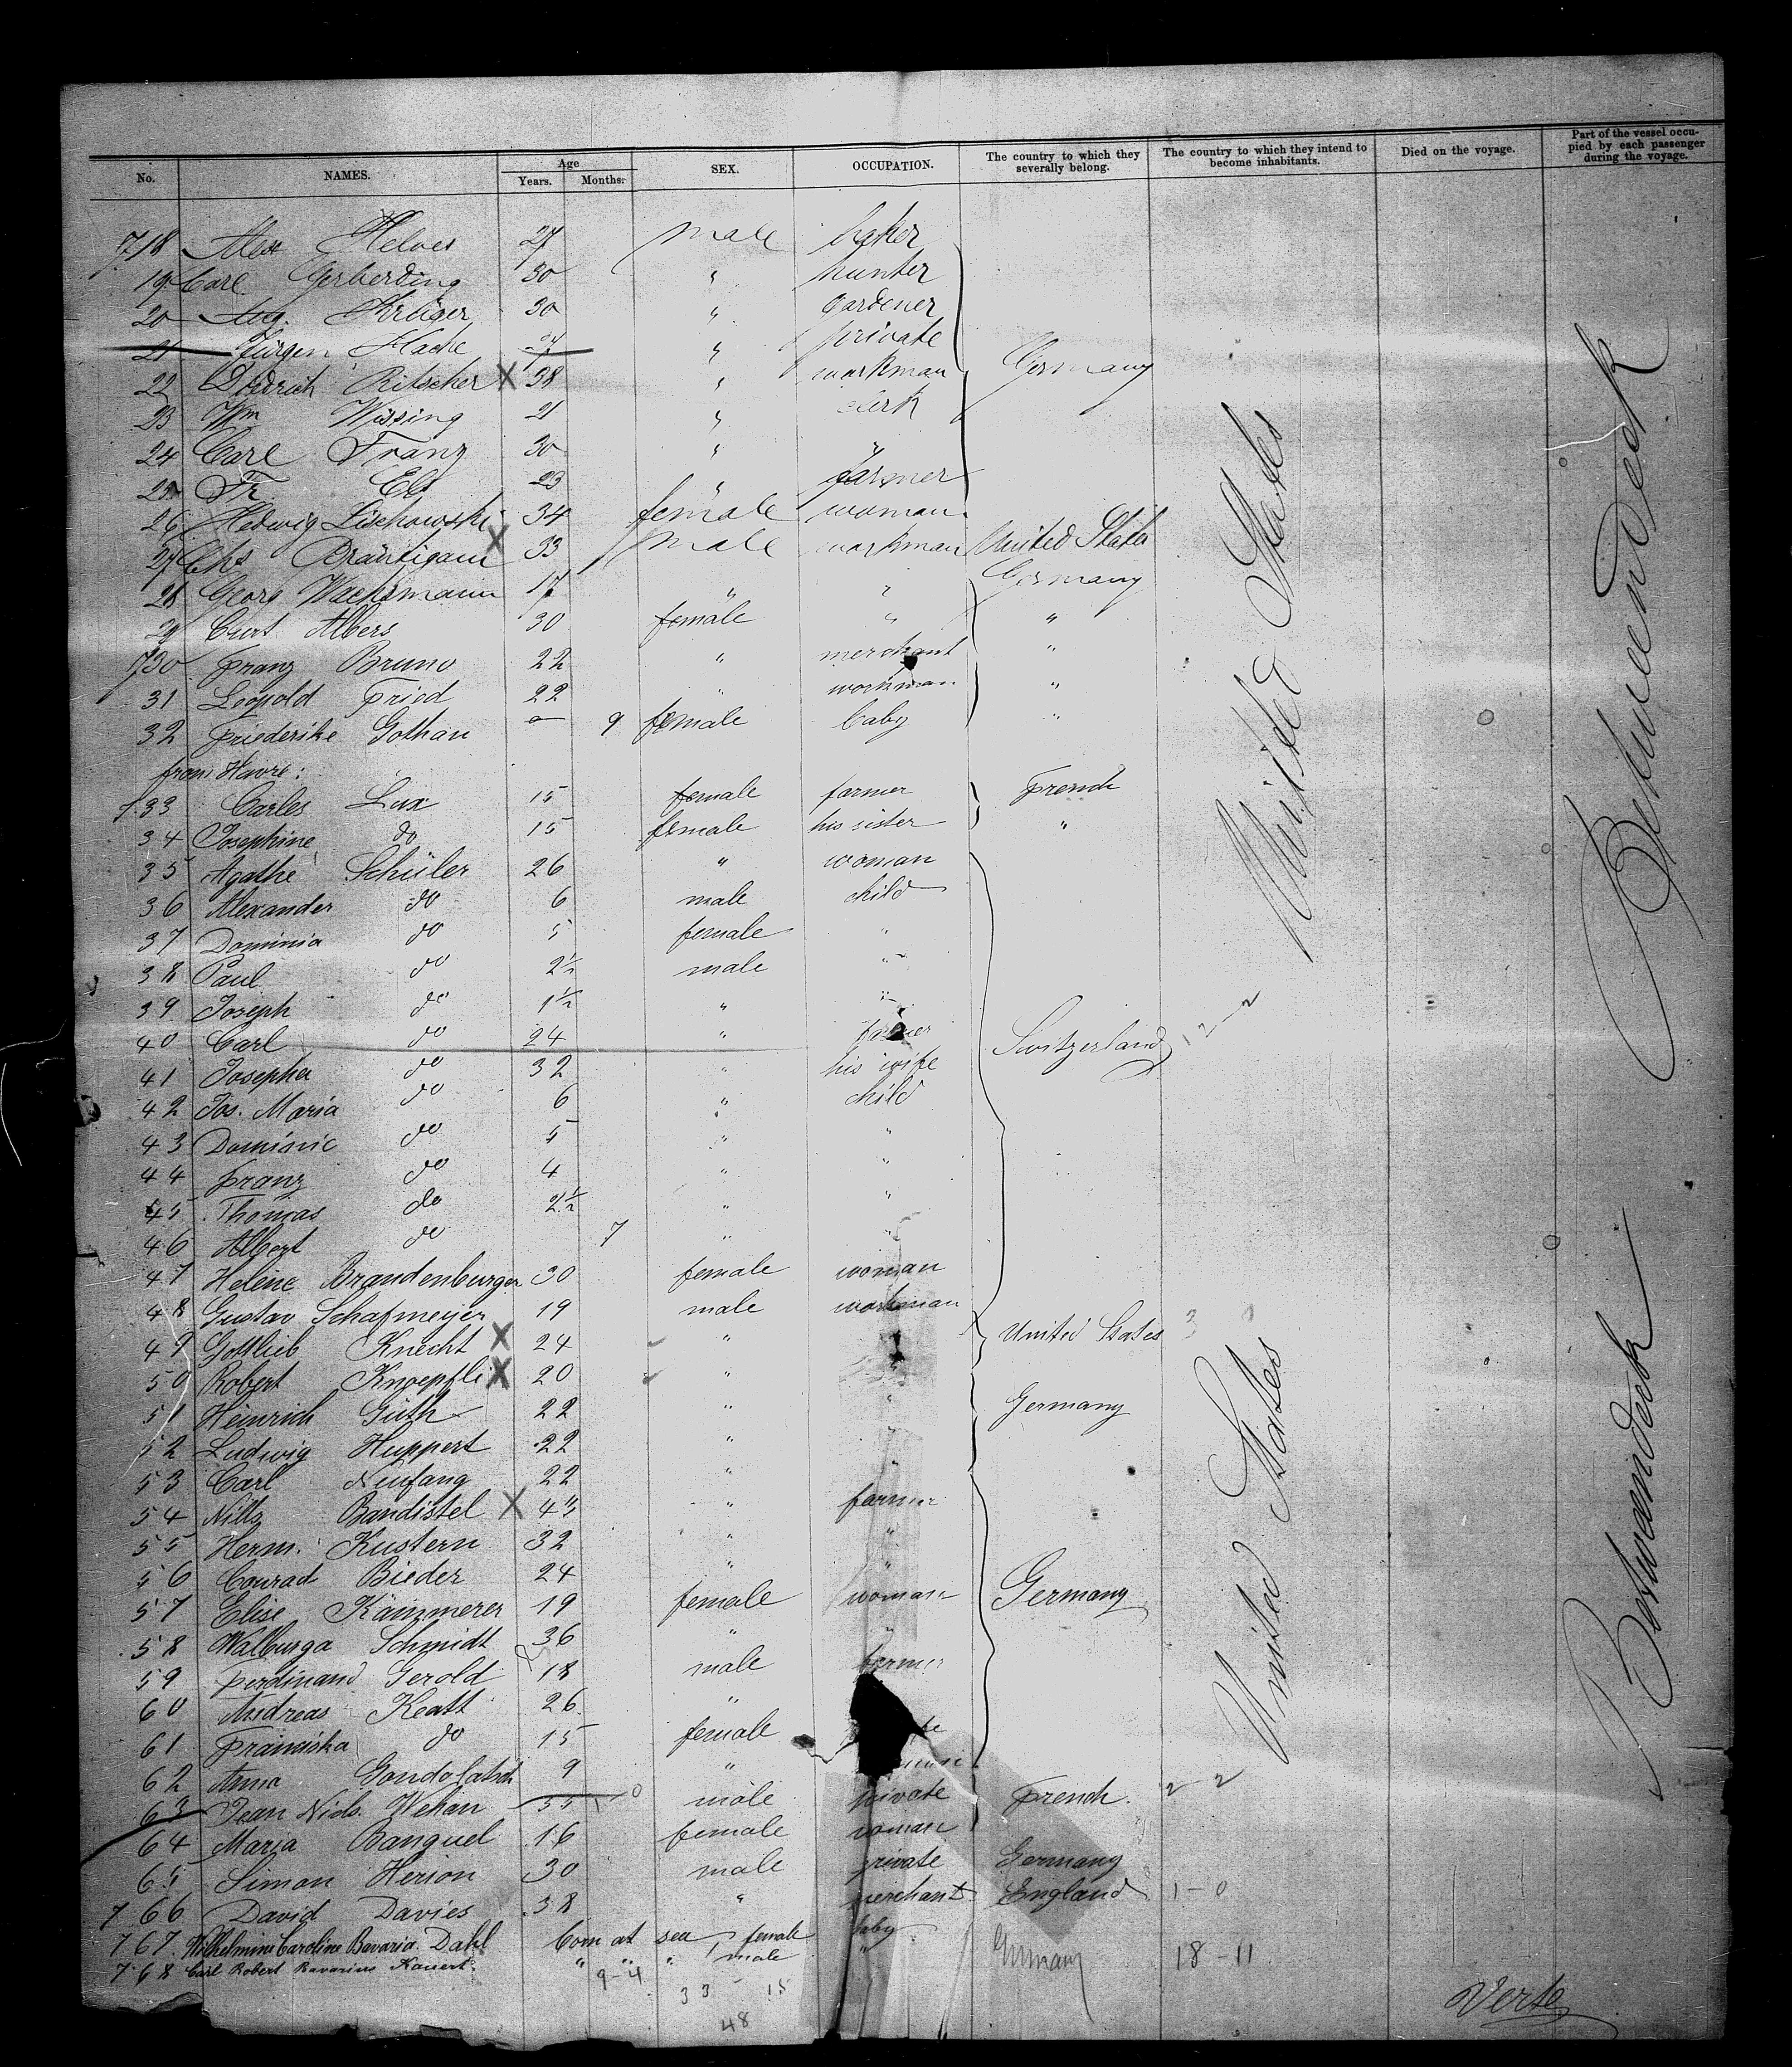 No. NAMES. Age Years. Months. SEX. OCCUPATION. The country to which they severally belong. The country to which they intend to become inhabitants. Died on the voyage. Part of the vessel occupied by each passenger during the voyage.
718 Alex Helves 27 male baker
19 Carl Gerberding 30 " hunter
20 Aug. Krüger 30 " gardener
21 Jürgen Hacke 27 " private
22 Diedrich Ritscher X 38 " workman Germany
23 Wm Wissing 21 " clerk
24 Carl Franz 30 " "
25 Fr Eli 23 " farmer
26 Hedwig Lischowski 34 female woman
27 Chs Bräutigam X 33 male workman United States
28 Georg Wachsmann 17 " " Germany
29 Curt Albers 30 female " "
730 Franz Bruno 22 " merchant "
31 Leopold Fried 22 " workman "
32 Friederike Gothan 9 female baby "
from Havre:
733 Carles Lux 15 female farmer French
34 Josephine do 15 female his sister "
35 Agathe Schüler 26 " woman
36 Alexander do 6 male child
37 Dominia do 5 female "
38 Paul do 2½ male "
39 Joseph do 1½ " "
40 Carl do 24 " farmer Switzerland 12-2
41 Josepha do 32 " his wife
42 Jos. Maria do 6 " child
43 Dominic do 5 " "
44 Franz do 4 " "
45 Thomas do 2½ " "
46 Albert do 7 " "
47 Helene Brandenburger 30 female woman
48 Gustav Schafmeyer 19 male workman
49 Gottlieb Knecht X 24 " " United States 3 0
50 Robert Knoepfli X 20 " "
51 Heinrich Güth 22 " " Germany
52 Ludwig Huppert 22 " "
53 Carl Neufang 22 " "
54 Nills Bandistel X 43 " farmer
55 Herm. Kustern 32 " "
56 Conrad Bieder 24 " "
57 Elise Kämmerer 19 female woman Germany
58 Walburga Schmidt 36 " "
59 Ferdinand Gerold 18 male farmer
60 Andreas Keatt 26 "
61 Franciska do 15 female
62 Anna Gondolatsch 9 "
63 Jean Nicls. Wehan 35 male private French. 2-2
64 Maria Banguel 16 female woman
65 Simon Herion 30 male private Germany
766 David Davies 38 " merchant England 1-0
767 Wilhelmine Caroline Bavaria Dahl born at sea female baby
768 Carl Robert Bavarius Kauert. " " " male " Germany 18-11
9-4
33 15
48
United States
United States
Zwischendeck
Zwischendeck
Verte